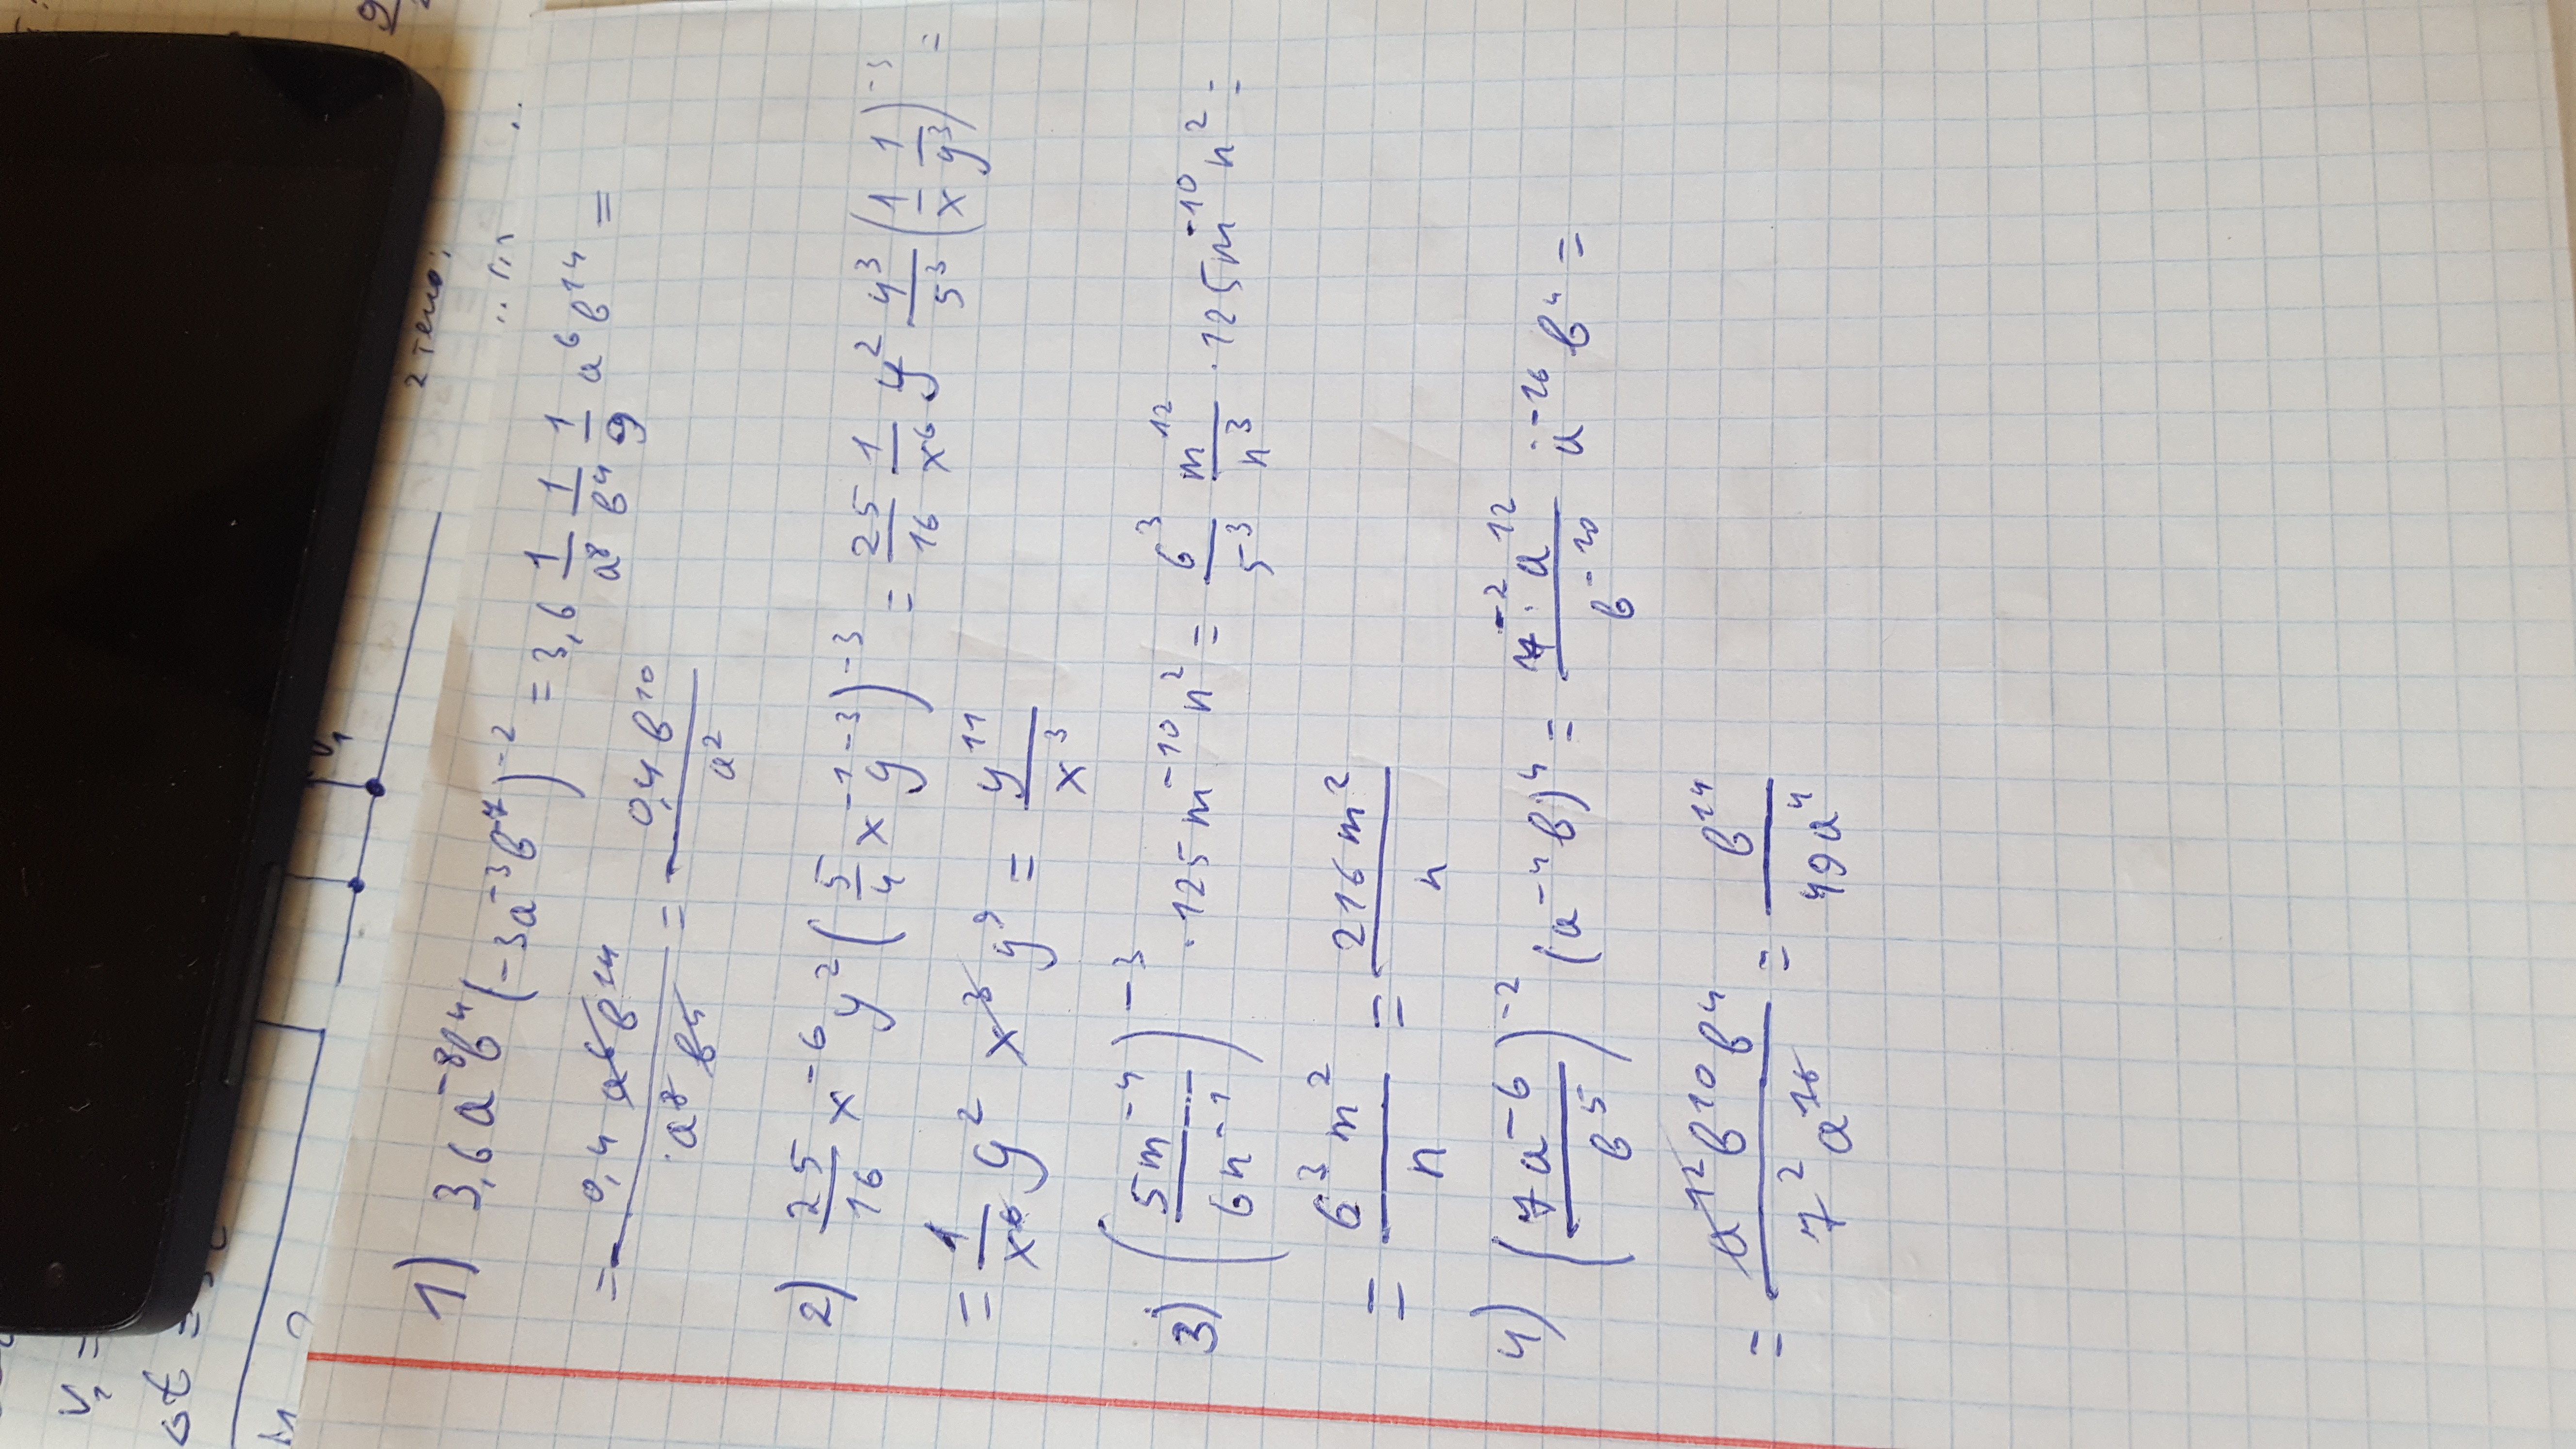 2 тело:
1) 3,6a⁻⁸b⁴(-3a⁻³b⁻⁷)⁻² = 3,6 1/a⁸ 1/b⁴ 1/9 a⁶b¹⁴ =
= 0,4 a⁶b¹⁴/a⁸b⁴ = 0,4b¹⁰/a²
2) 25/16 x⁻⁶y²(5/4 x⁻¹y⁻³)⁻³ = 25/16 1/x⁶ y² 4³/5³ (1/x 1/y³)⁻³ =
= 1/x⁶ y² x³ y⁹ = y¹¹/x³
3) (5m⁻⁴/6n⁻¹)⁻³ · 125m⁻¹⁰n² = 6³/5³ m¹²/n³ · 125m⁻¹⁰n² =
= 6³m²/n = 216m²/n
4) (7a⁻⁶/b⁵)⁻² (a⁻⁴b)⁴ = 7⁻²·a¹²/b⁻¹⁰ a⁻¹⁶ b⁴ =
= a¹²b¹⁰b⁴/7²a¹⁶ = b¹⁴/49a⁴